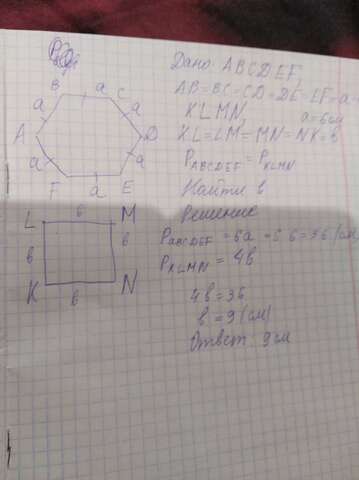 B a C
a a
A D
a a
F a E
L в M
в в
K в N
Дано: ABCDEF,
AB=BC=CD=DE=EF=a
KLMN, a=6см
KL=LM=MN=NK=в
P ABCDEF = P KLMN
Найти в
Решение
P ABCDEF = 6a = 6·6=36 (см)
P KLMN = 4в
4в=36
в=9 (см)
Ответ: 9см